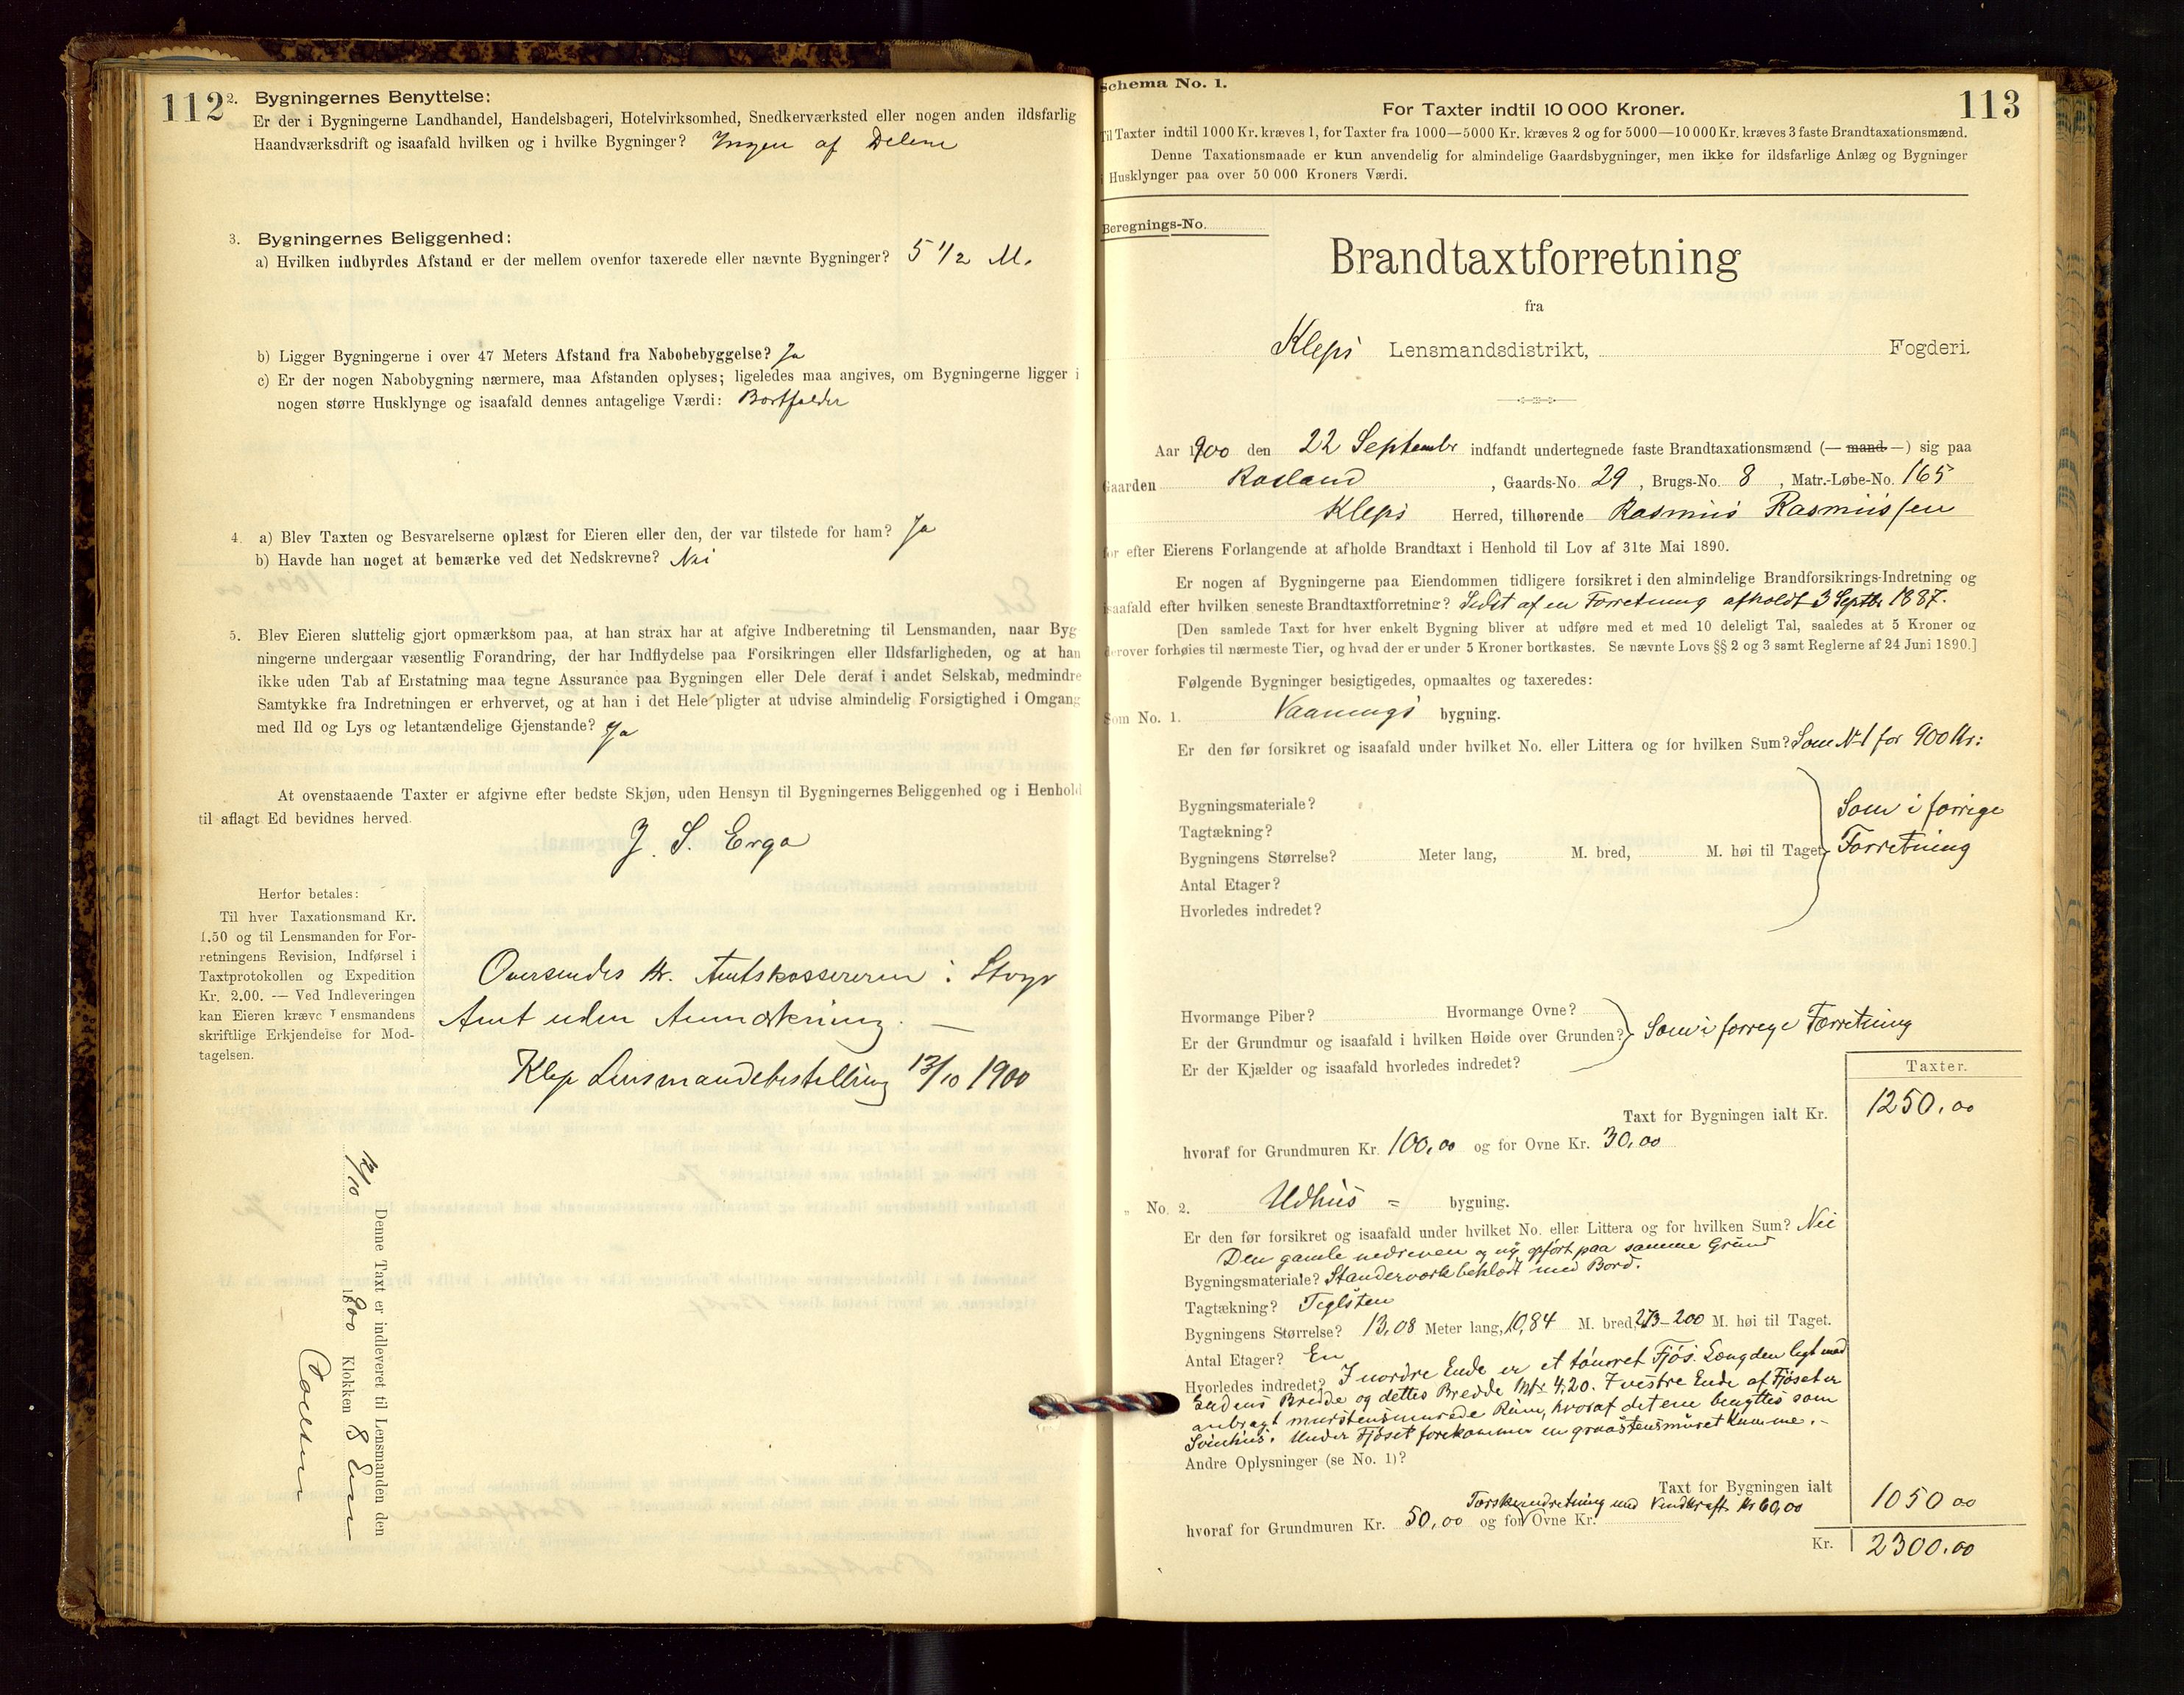 112
2. Bygningernes Benyttelse:
Er der i Bygningerne Landhandel, Handelsbageri, Hotelvirksomhed, Snedkerværksted eller nogen anden ildsfarlig
Haandværksdrift og isaafald hvilken og i hvilke Bygninger? Ingen af Delene
3. Bygningernes Beliggenhed:
a) Hvilken indbyrdes Afstand er der mellem ovenfor taxerede eller nævnte Bygninger? 5 1/2 M.
b) Ligger Bygningerne i over 47 Meters Afstand fra Nabobebyggelse? Ja
c) Er der nogen Nabobygning nærmere, maa Afstanden oplyses; ligeledes maa angives, om Bygningerne ligger i
nogen større Husklynge og isaafald dennes antagelige Værdi: Bortfalder
4. a) Blev Taxten og Besvarelserne oplæst for Eieren eller den, der var tilstede for ham? Ja
b) Havde han noget at bemærke ved det Nedskrevne? Nei
5. Blev Eieren sluttelig gjort opmærksom paa, at han strax har at afgive Indberetning til Lensmanden, naar Byg
ningerne undergaar væsentlig Forandring, der har Indflydelse paa Forsikringen eller Ildsfarligheden, og at han
ikke uden Tab af Erstatning maa tegne Assurance paa Bygningen eller Dele deraf i andet Selskab, medmindre
Samtykke fra Indretningen er erhvervet, og at han i det Hele pligter at udvise almindelig Forsigtighed i Omgang
med Ild og Lys og letantændelige Gjenstande? Ja
At ovenstaaende Taxter er afgivne efter bedste Skjøn, uden Hensyn til Bygningernes Beliggenhed og i Henhold
til aflagt Ed bevidnes herved.
J. S. Erga
Herfor betales:
Til hver Taxationsmand Kr.
1.50 og til Lensmanden for For-
retningens Revision, Indførsel i
Taxtprotokollen og Expedition
Kr. 2.00. — Ved Indleveringen
kan Eieren kræve Lensmandens
skriftlige Erkjendelse for Mod-
tagelsen.
Oversendes Hr. Amtskassereren i Stvgr
Amt uden Anmærkning. —
Klep Lensmandsbestilling 13/10 1900
Denne Taxt er indleveret til Lensmanden den
/10 1900 Klokken 8 Em
113
Schema No. 1.
For Taxter indtil 10 000 Kroner.
Til Taxter indtil 1000 Kr. kræves 1, for Taxter fra 1000—5000 Kr. kræves 2 og for 5000—10 000 Kr. kræves 3 faste Brandtaxationsmænd.
Denne Taxationsmaade er kun anvendelig for almindelige Gaardsbygninger, men ikke for ildsfarlige Anlæg og Bygninger
i Husklynger paa over 50 000 Kroners Værdi.
Beregnings-No.
Brandtaxtforretning
fra
Klepp Lensmandsdistrikt, Fogderi.
Aar 1900 den 22 Septembr indfandt undertegnede faste Brandtaxationsmænd (— mand —) sig paa
Gaarden Rosland, Gaards-No. 29, Brugs-No. 8, Matr.-Løbe-No. 165
Klepp Herred, tilhørende Rasmus Rasmussen
for efter Eierens Forlangende at afholde Brandtaxt i Henhold til Lov af 31te Mai 1890.
Er nogen af Bygningerne paa Eiendommen tidligere forsikret i den almindelige Brandforsikrings-Indretning og
isaafald efter hvilken seneste Brandtaxtforretning? Sidst af en Forretning afholdt 3 Septbr 1887.
[Den samlede Taxt for hver enkelt Bygning bliver at udføre med et med 10 deleligt Tal, saaledes at 5 Kroner og
derover forhøies til nærmeste Tier, og hvad der er under 5 Kroner bortkastes. Se nævnte Lovs §§ 2 og 3 samt Reglerne af 24 Juni 1890.]
Følgende Bygninger besigtigedes, opmaaltes og taxeredes:
Som No. 1. Vaanings bygning.
Er den før forsikret og isaafald under hvilket No. eller Littera og for hvilken Sum? Som No 1 for 900 Kr:
Bygningsmateriale?
Tagtækning?
Bygningens Størrelse? Meter lang, M. bred, M. høi til Taget.
Antal Etager?
Hvorledes indredet?
Som i forrige
Forretning
Hvormange Piber? Hvormange Ovne?
Er der Grundmur og isaafald i hvilken Høide over Grunden?
Er der Kjælder og isaafald hvorledes indredet?
Som i forrige Forretning
Taxter.
Taxt for Bygningen ialt Kr. 1250.00
hvoraf for Grundmuren Kr. 100,00 og for Ovne Kr. 30,00
„ No. 2. Udhus = bygning.
Er den før forsikret og isaafald under hvilket No. eller Littera og for hvilken Sum? Nei
Den gamle nedreven og ny opført paa samme Grund
Bygningsmateriale? Standerværk beklædt med Bord.
Tagtækning? Teglsten
Bygningens Størrelse? 13,08 Meter lang, 10,84 M. bred, 273-200 M. høi til Taget.
Antal Etager? En
Hvorledes indredet? I nordre Ende er et tømret Fjøs. Længden ligt med
Endens Bredde og dettes Bredde Mtr 4,20. I vestre Ende af Fjøset er
anbragt murstensmurede Rum, hvoraf det ene benyttes som
Svinhus. Under Fjøset forekommer en graastensmuret Kumme. -
Andre Oplysninger (se No. 1)?
Taxt for Bygningen ialt 1050 00
Tærskeindretning med Vindkraft Kr 60,00
hvoraf for Grundmuren Kr. 50,00 og for Ovne Kr.
Kr. 2300.00